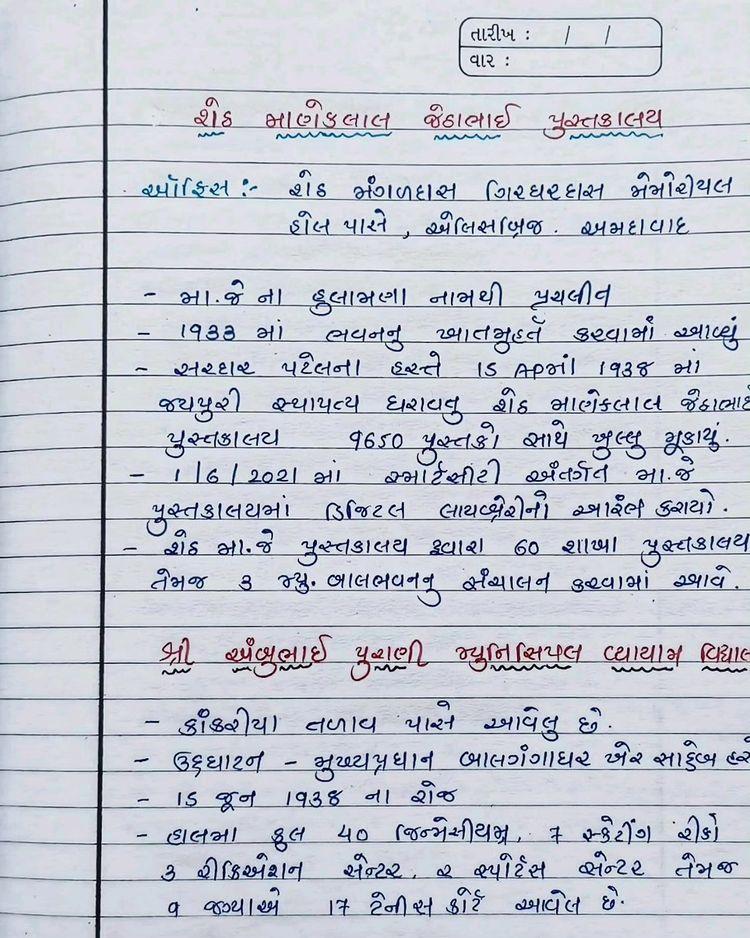 તારીખ : / /
વાર :
શેઠ માણેકલાલ જેઠાભાઈ પુસ્તકાલય
ઑફિસ :- શેઠ મંગળદાસ ગિરધરદાસ મેમોરીયલ
હોલ પાસે , એલિસબ્રિજ . અમદાવાદ
- મા.જે ના હુલામણા નામથી પ્રચલીત
- 1933 માં ભવનનુ ખાતમુહર્ત કરવામાં આવ્યું
- સરદાર પટેલના હસ્તે 15 APમાં 1938 માં
જયપુરી સ્થાપત્ય ધરાવતુ શેઠ માણેકલાલ જેઠાભાઈ
પુસ્તકાલય 9650 પુસ્તકો સાથે ખુલ્લુ મૂકાયું.
- 1/6/2021 માં સ્માર્ટસીટી અંતર્ગત મા.જે
પુસ્તકાલયમાં ડિજિટલ લાયબ્રેરીનો આરંભ કરાયો .
- શેઠ મા.જે પુસ્તકાલય દ્વારા 60 શાખા પુસ્તકાલય
તેમજ 3 મ્યુ. બાલભવનનુ સંચાલન કરવામાં આવે.
શ્રી અંબુભાઈ પુરાણી મ્યુનિસિપલ વ્યાયામ વિદ્યાલ
- કાંકરીયા તળાવ પાસે આવેલુ છે.
- ઉદ્દઘાટન - મુખ્યપ્રધાન બાલગંગાધર ખેર સાહેબ હસ્
- 15 જૂન 1938 ના રોજ
- હાલમા કુલ 40 જિન્મેસીયમ્, 7 સ્કેટીંગ રીંકો
3 રીક્રિએશન સેન્ટર, ૨ સ્પોર્ટસ સેન્ટર તેમજ
૧ જગ્યાએ 17 ટેનીસ કોર્ટ આવેલ છે.